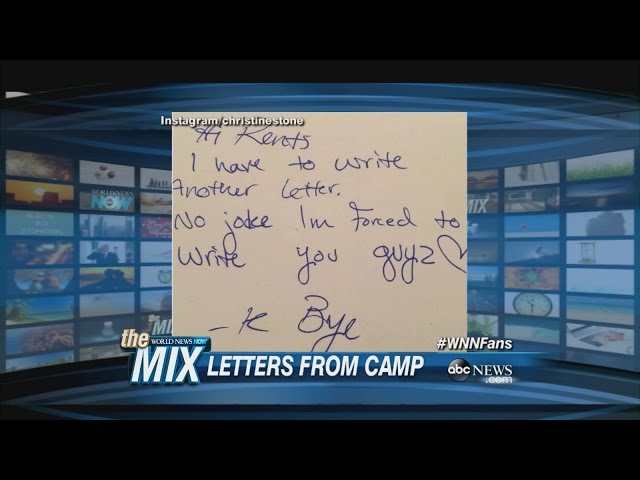 Instagram/christinestone
Hi Rents
I have to write
Another Letter.
No joke Im Forced to
write you guyz♡
– K Bye
#WNNFans
the
WORLD NEWS NOW
MIX
LETTERS FROM CAMP
abc NEWS
.com
WORLD NEWS
NOW
MIX
the